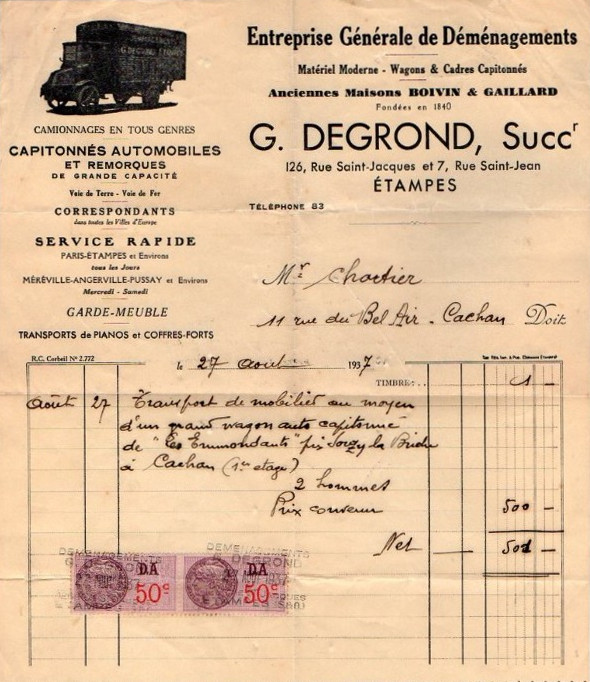 G. DEGROND, ETAMPES
CAMIONNAGES EN TOUS GENRES
CAPITONNÉS AUTOMOBILES
ET REMORQUES
DE GRANDE CAPACITÉ
Voie de Terre - Voie de Fer
CORRESPONDANTS
dans toutes les Villes d'Europe
SERVICE RAPIDE
PARIS-ÉTAMPES et Environs
tous les Jours
MÉRÉVILLE-ANGERVILLE-PUSSAY et Environs
Mercredi - Samedi
GARDE-MEUBLE
TRANSPORTS de PIANOS et COFFRES-FORTS
Entreprise Générale de Déménagements
Matériel Moderne - Wagons & Cadres Capitonnés
Anciennes Maisons BOIVIN & GAILLARD
Fondées en 1840
G. DEGROND, Succr
126, Rue Saint-Jacques et 7, Rue Saint-Jean
ÉTAMPES
TÉLÉPHONE 83
Mr
11 rue du Bel Air - Cachan Doit
R.C. Corbeil N° 2.772
le 27 août 1937
TIMBRE . . 1 -
Août 27 Transport de mobilier au moyen
d'un grand wagon auto capitonné
de "Les Emmondants" près la
à Cachan (1er etage)
2 hommes
Prix convenu 500 -
Net 501 -
DEMENAGEMENTS DEMENAGEMENTS
G. DEGROND G. DEGROND
DA DA
50c 50c